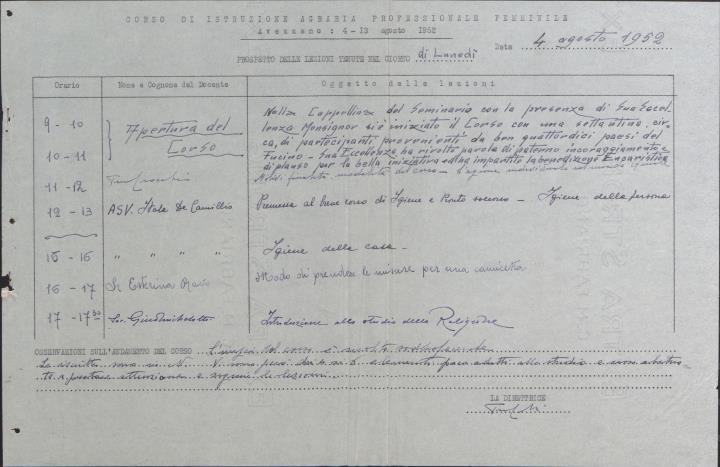 CORSO DI ISTRUZIONE AGRARIA PROFESSIONALE FEMMINILE
Avezzano: 4-13 agosto 1952
PROSPETTO DELLE LEZIONI TENUTE NEL GIORNO di Lunedì Data 4 agosto 1952
Orario Nome e Cognome del Docente Oggetto delle lezioni
9-10 Apertura del Corso
Nella Cappellina del Seminario con la presenza di Sua Eccel-
lenza Monsignor si è iniziato il Corso con una settantina, cir-
ca, di partecipanti provenienti da ben quattordici paesi del
Fucino - Sua Eccellenza ha rivolto parola di paterno incoraggiamento e
10-11 di plauso per la bella iniziativa ed ha impartito la benedizione Eucaristica
11-12 finalità, modalità del corso
12-13 ASV. Itala De Camillis Premessa al breve corso di Igiene e Pronto soccorso - Igiene della persona
15-16 " " " " Igiene della casa -
16-17 Sr Esterina Modo di prendere le misure per una camicetta
17-1730 Introduzione allo studio della Religione
OSSERVAZIONI SULL'ANDAMENTO DEL CORSO L'inizio del corso è
elementi poco adatti allo studio e non
attenzione e lezioni
LA DIRETTRICE